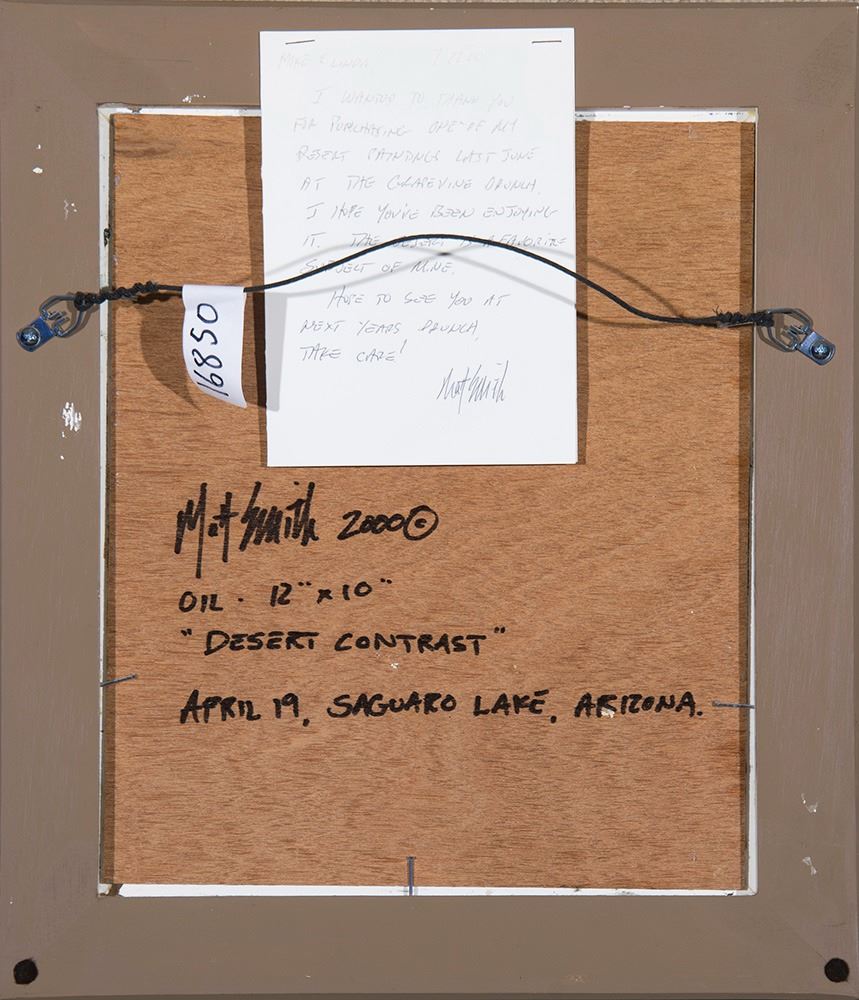 MIKE & LINDA
I WANTED TO THANK YOU
FOR PURCHASING ONE OF MY
DESERT PAINTINGS LAST JUNE
AT THE GRAPEVINE BRUNCH.
I HOPE YOU'VE BEEN ENJOYING
IT. THE DESERT IS A FAVORITE
SUBJECT OF MINE.
HOPE TO SEE YOU AT
NEXT YEARS BRUNCH.
TAKE CARE!
Matt Smith
16850
Matt Smith 2000©
OIL - 12" x 10"
"DESERT CONTRAST"
APRIL 19, SAGUARO LAKE, ARIZONA.